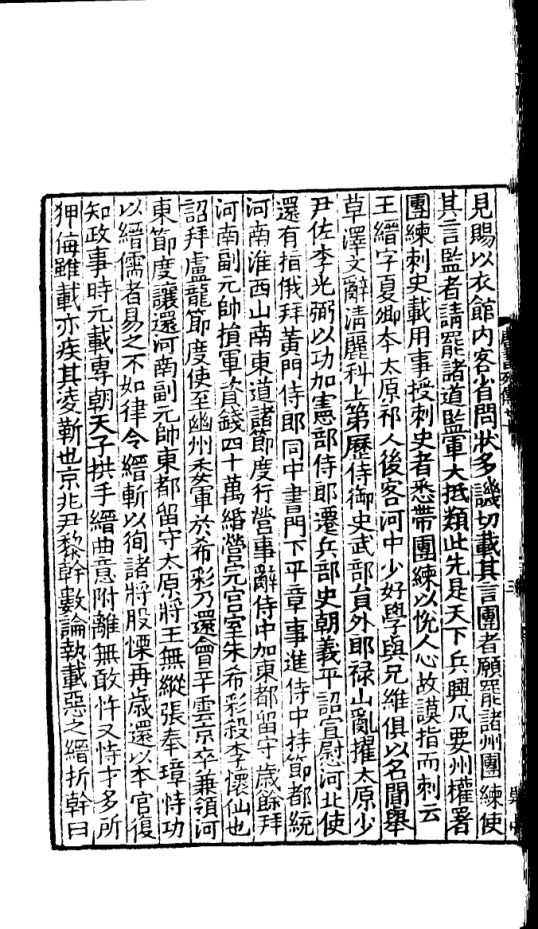 見賜以衣館内客省問狀多譏切載其言團者願罷諸州團練使
其言監者請罷諸道監軍大抵類此先是天下兵興凡要州權署
團練刺史載用事授刺史者悉帶團練以恱人心故謨指而刺云
王縉字夏卿本太原祁人後客河中少好學與兄維俱以名聞舉
草澤文辭清麗科上第歷侍御史武部員外郎禄山亂擢太原少
尹佐李光弼以功加憲部侍郎遷兵部史朝義平詔宣慰河北使
還有指俄拜黄門侍郎同中書門下平章事進侍中持節都統
河南淮西山南東道諸節度行營事辭侍中加東都留守歲餘拜
河南副元帥損軍資錢四十萬緡營完宫室朱希彩殺李懷仙也
詔拜盧龍節度使至幽州委軍於希彩乃還會辛雲京卒兼領河
東節度讓還河南副元帥東都留守太原將王無縱張奉璋恃功
以縉儒者易之不如律令縉斬以徇諸將股慄再歲還以本官復
知政事時元載專朝天子拱手縉曲意附離無敢忤又恃才多所
狎侮雖載亦疾其凌靳也京兆尹黎幹數論執載惡之縉折幹曰